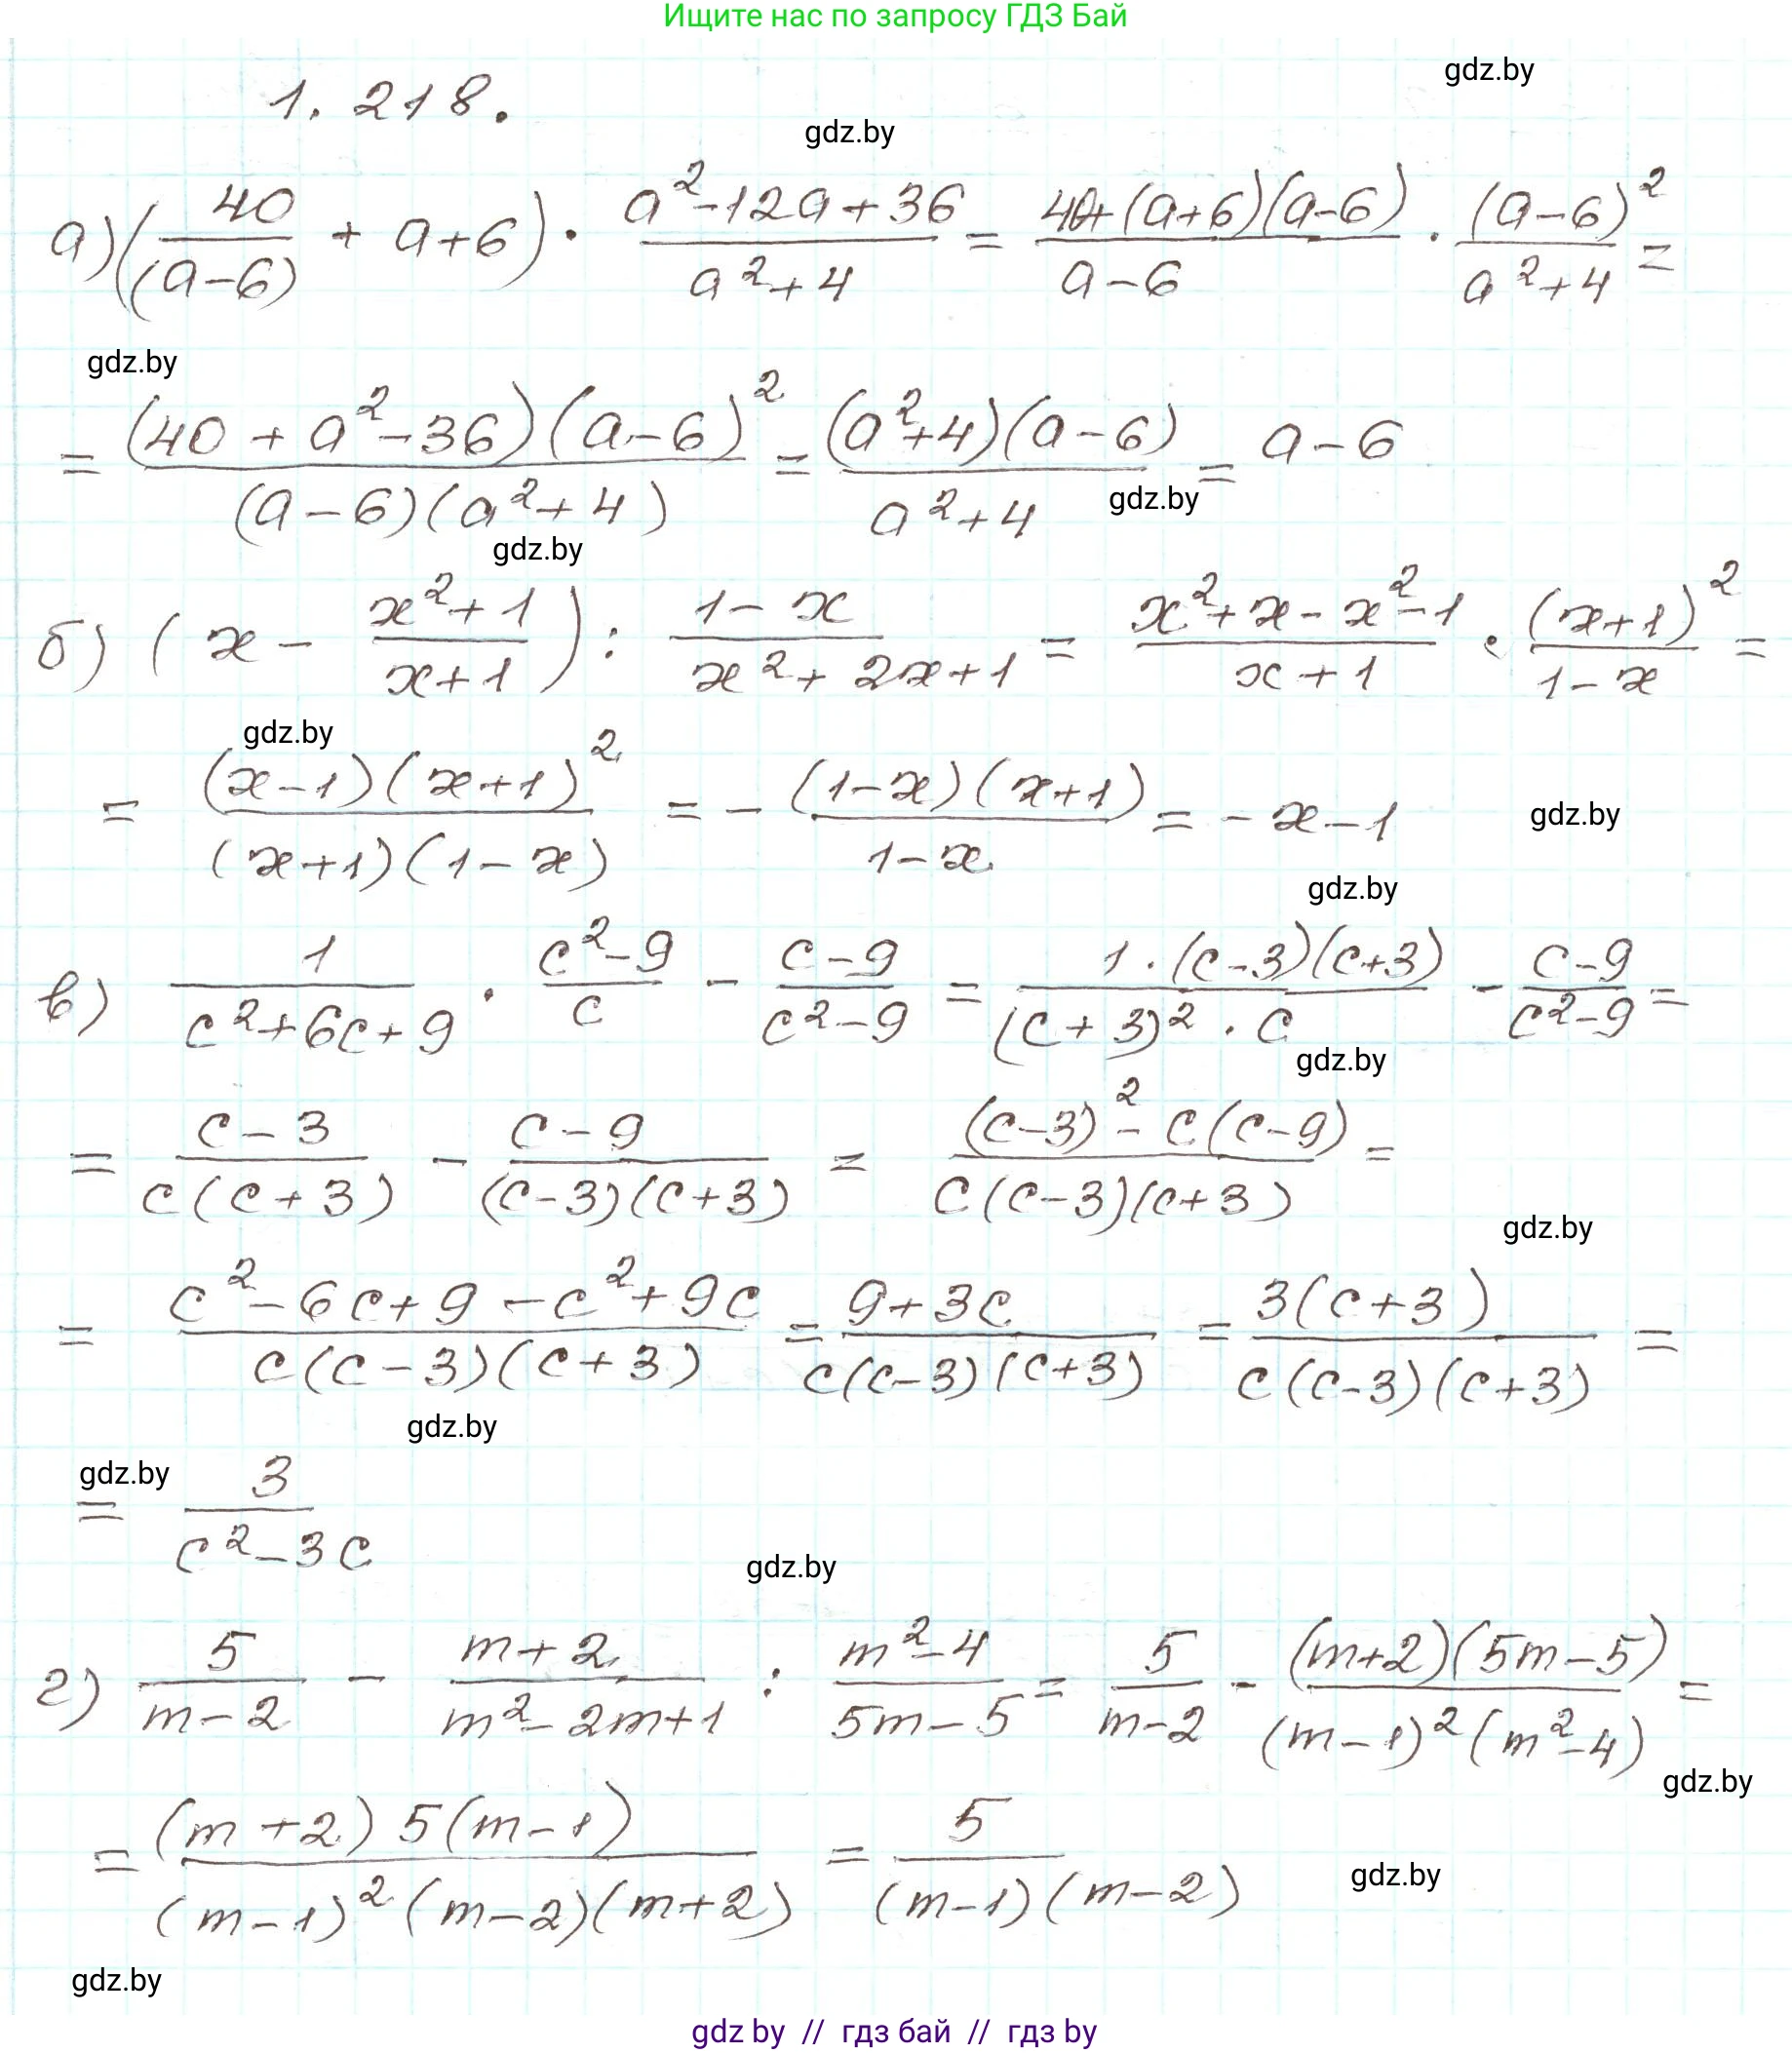 Ищите нас по запросу ГДЗ Бай
gdz.by
1. 218.
gdz.by
а) (40/(a-6) + a+6) · (a²-12a+36)/(a²+4) = (40+(a+6)(a-6))/(a-6) · (a-6)²/(a²+4) =
gdz.by
= (40+a²-36)(a-6)²/((a-6)(a²+4)) = (a²+4)(a-6)/(a²+4) = a-6
gdz.by
gdz.by
б) (x - (x²+1)/(x+1)) : (1-x)/(x²+2x+1) = (x²+x-x²-1)/(x+1) · (x+1)²/(1-x) =
gdz.by
= (x-1)(x+1)²/((x+1)(1-x)) = - (1-x)(x+1)/(1-x) = -x-1
gdz.by
gdz.by
в) 1/(c²+6c+9) · (c²-9)/c - (c-9)/(c²-9) = 1·(c-3)(c+3)/((c+3)²·c) - (c-9)/(c²-9) =
gdz.by
= (c-3)/(c(c+3)) - (c-9)/((c-3)(c+3)) = ((c-3)²-c(c-9))/(c(c-3)(c+3)) =
gdz.by
= (c²-6c+9-c²+9c)/(c(c-3)(c+3)) = (9+3c)/(c(c-3)(c+3)) = 3(c+3)/(c(c-3)(c+3)) =
gdz.by
gdz.by
= 3/(c²-3c)
gdz.by
г) 5/(m-2) - (m+2)/(m²-2m+1) : (m²-4)/(5m-5) = 5/(m-2) - (m+2)(5m-5)/((m-1)²(m²-4)) =
gdz.by
= (m+2)5(m-1)/((m-1)²(m-2)(m+2)) = 5/((m-1)(m-2))
gdz.by
gdz.by
gdz by // гдз бай // гдз by